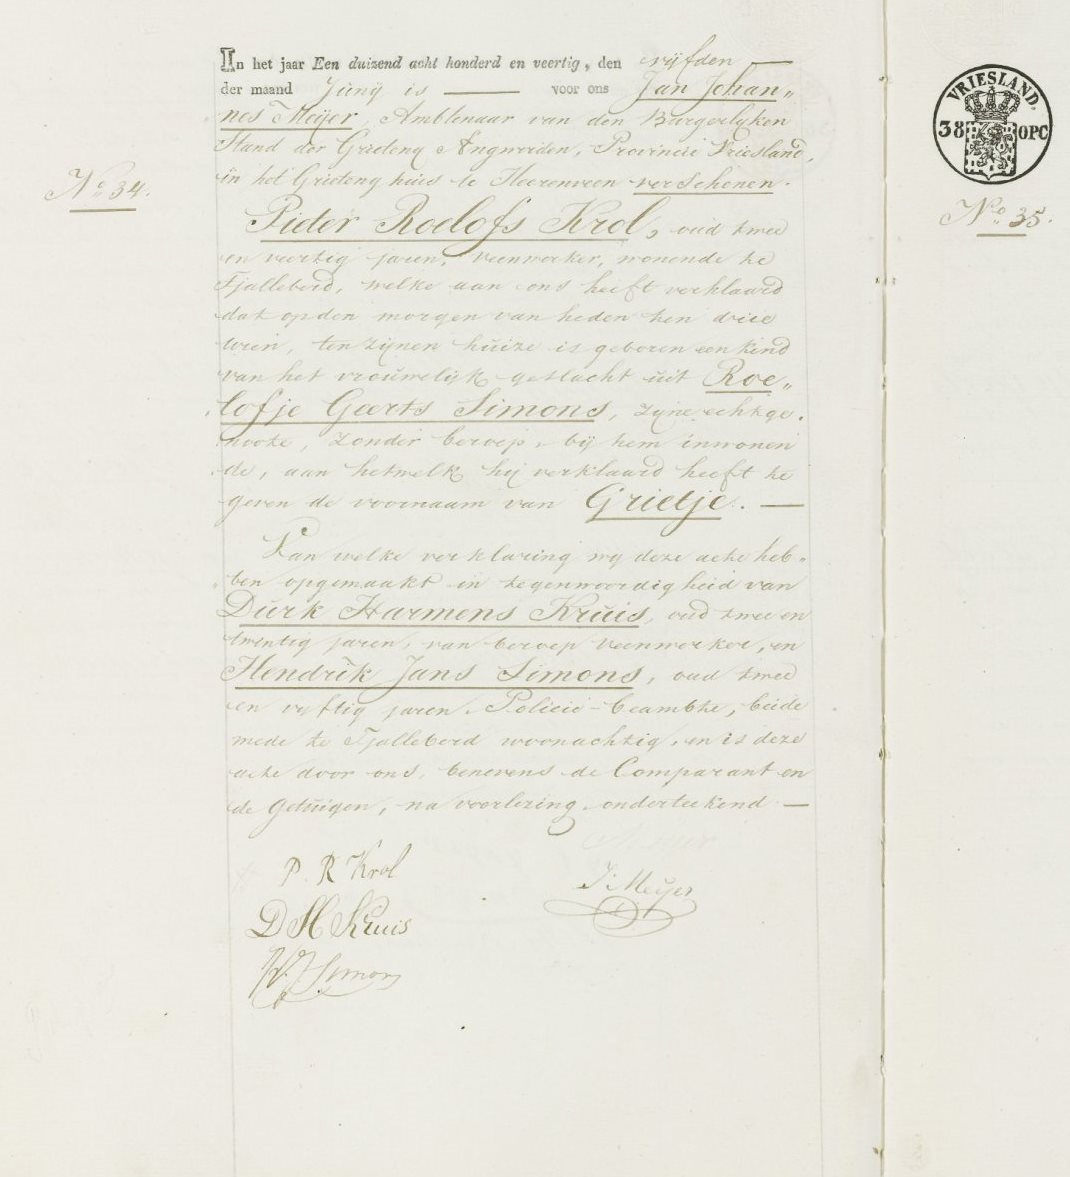 In het jaar Een duizend acht honderd en veertig, den vijfden —
der maand Junij is — voor ons Jan Johan„
nes Meijer, Ambtenaar van den Burgerlijken
Stand der Grieteny Ængwirden, Provincie Vriesland,
in het Grieteny huis te Heerenveen verschenen.
No 34.
Pieter Roelofs Krol, oud twee
en veertig jaren, veenwerker, wonende te
Tjallebert, welke aan ons heeft verklaard
dat op den morgen van heden ten drie
uren, ten zijnen huize is geboren een kind
van het vrouwelijk geslacht uit Roe„
lofje Geerts Simons, zijne echtge„
noote, zonder beroep, bij hem inwonen
de, aan hetwelk hij verklaard heeft te
geven de voornaam van Grietje. —
Van welke verklaring wij deze acte heb„
ben opgemaakt in tegenwoordigheid van
Durk Harmens Kruis, oud twee en
twintig jaren, van beroep veenwerker, en
Hendrik Jans Simons, oud twee
en vijftig jaren, Policie-beambte, beide
mede te Tjallebert woonachtig, en is deze
acte door ons, benevens de Comparant en
de Getuigen, na voorlezing onderteekend —
P. R Krol
J: Meijer
D H Kruis
H. J Simons
VRIESLAND.
38 OPC
No 35.